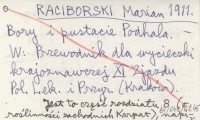 RACIBORSKI Marian 1911.
Bory i pustacie Podhala. —
W: Przewodnik dla wycieczki
krajoznawczej XI Zjazdu
Pol. Lek. i Przyr. (Kraków)
Jest to część rozdziału
roślinności zachodnich Karpat),